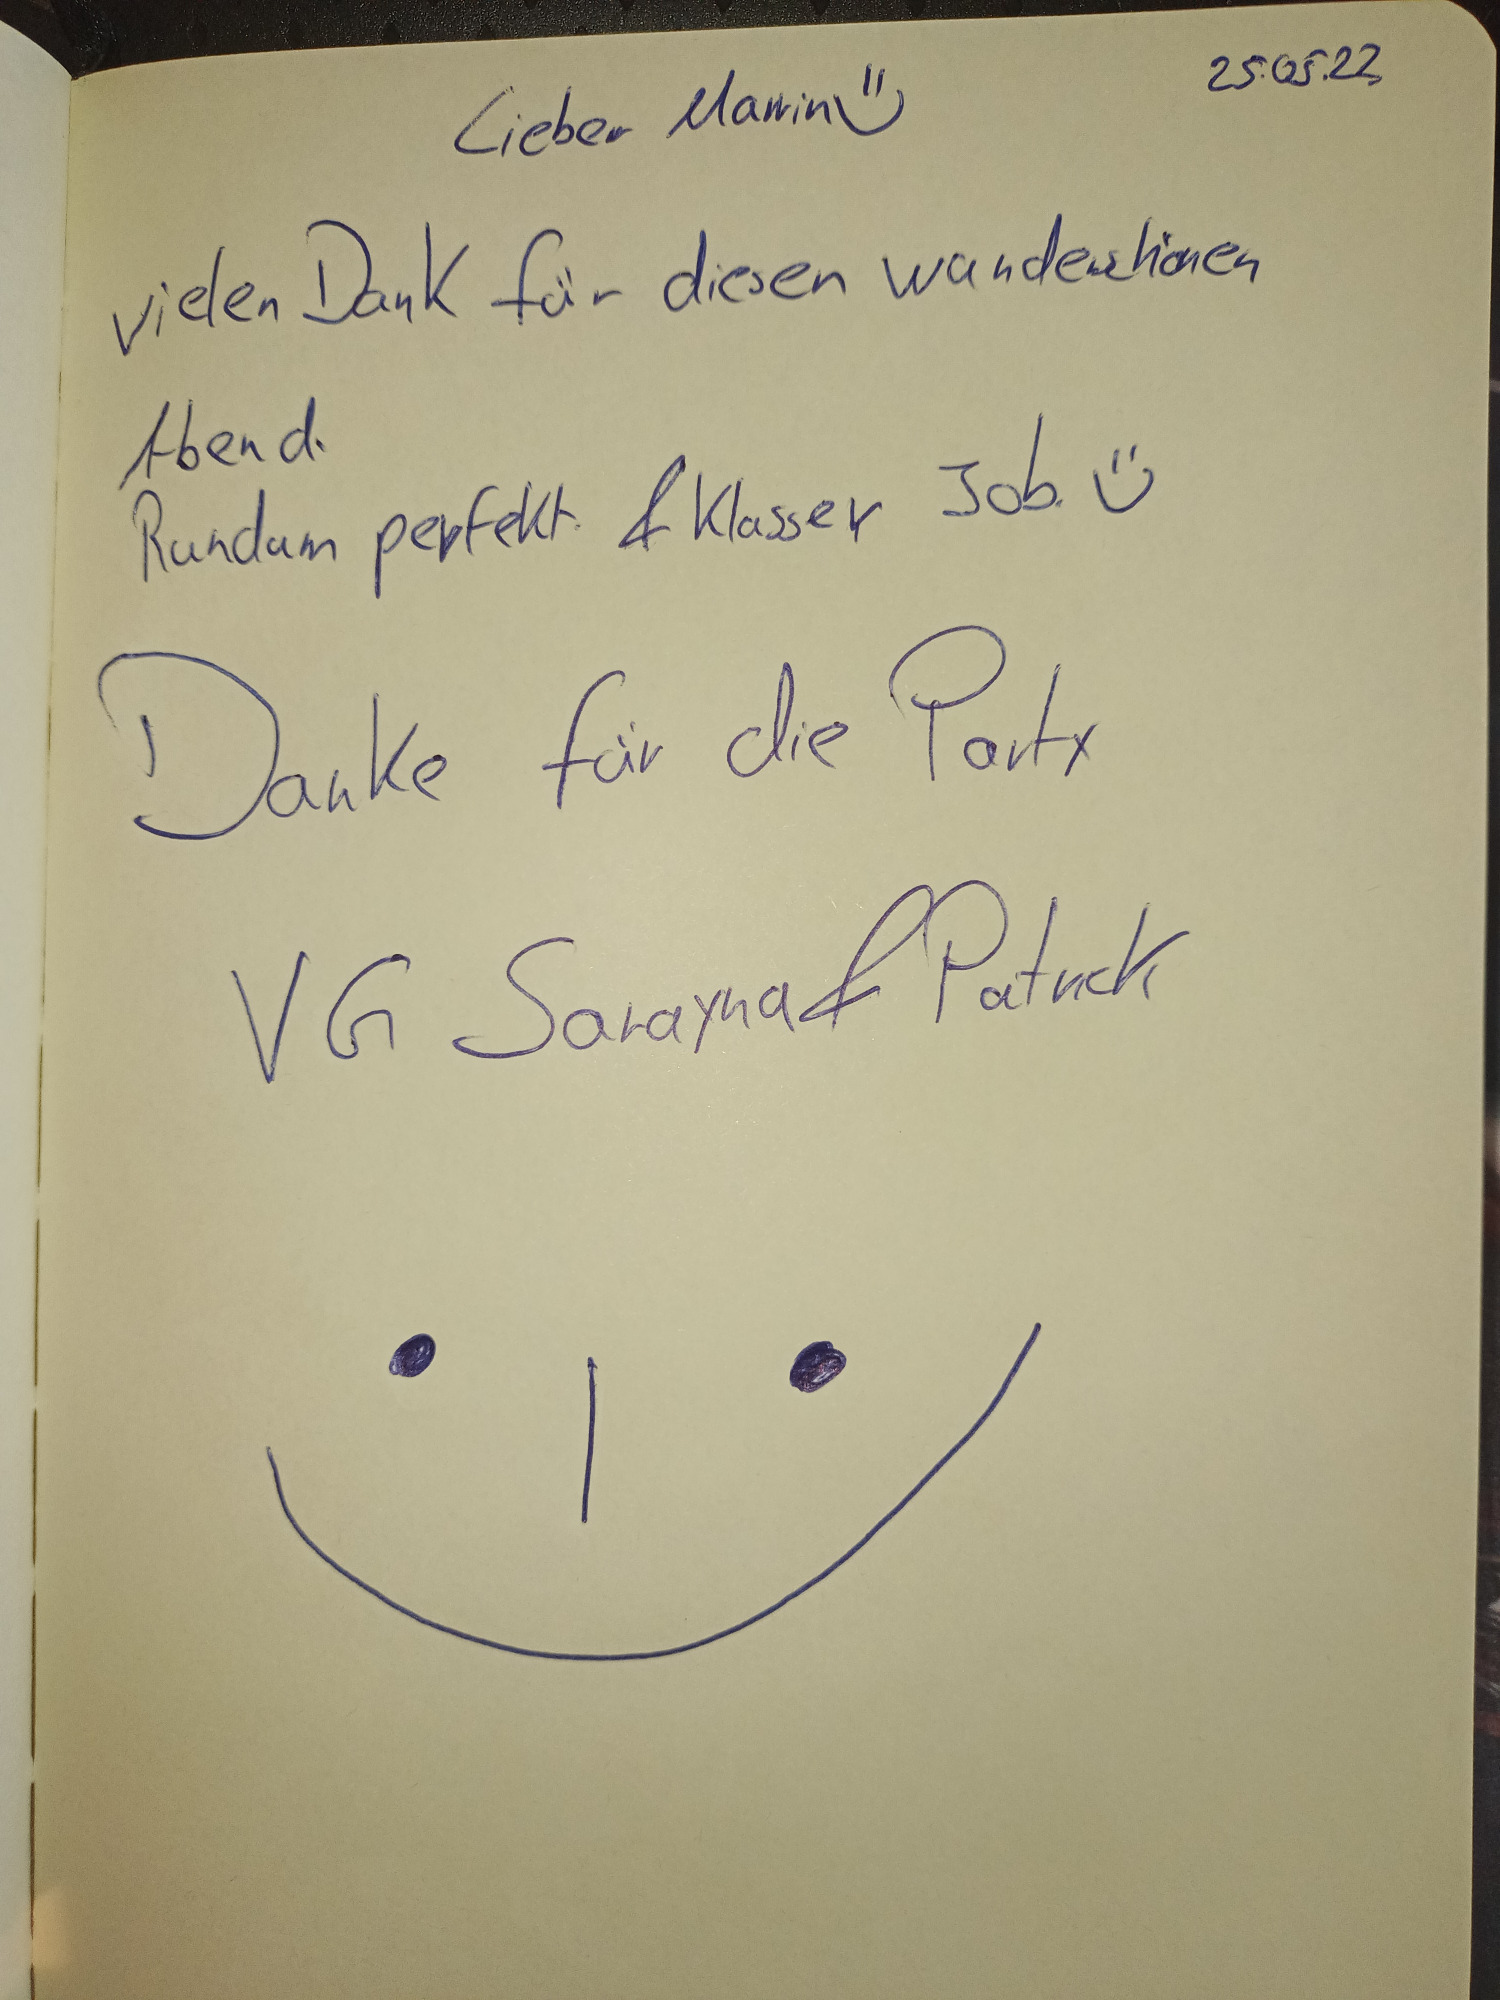 25.05.22
Lieber Marvin
vielen Dank für diesen wunderschönen
Abend.
Rundum perfekt. & Klasser Job.
Danke für die Party
VG Sarayna & Patrick